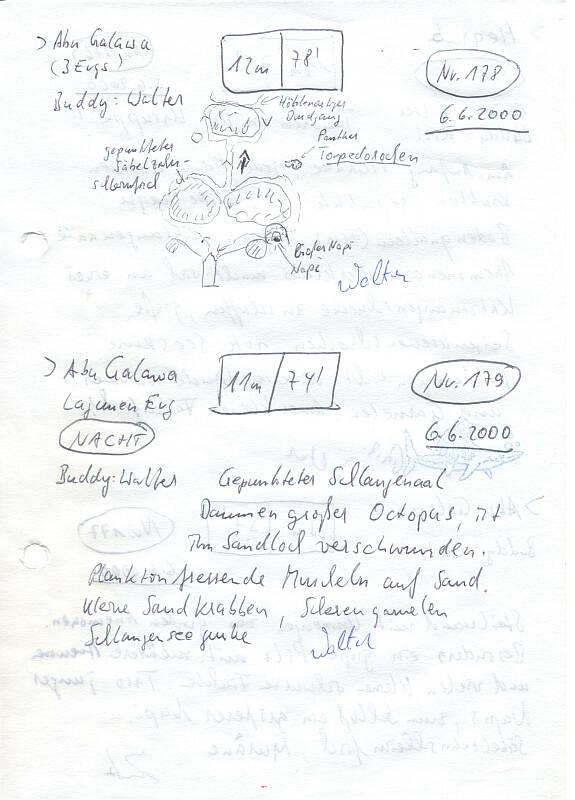 > Abu Galawa
(3 Ergs)
Buddy: Walter
12m 78'
Nr. 178
6.6.2000
Höhlenartiger
Durchgang
gepunkteter
Säbelzahn-
schleimfisch
Panther
Torpedorochen
Großer Napi
Napi
Walter
> Abu Galawa
Lagunen Erg
NACHT
Buddy: Walter
11m 74'
Nr. 179
6.6.2000
Gepunkteter Schlangenaal
Daumen großer Octopus, ist
Im Sandloch verschwunden.
Plankton fressende Muscheln auf Sand.
kleine Sandkrabben, Scherengarnelen
Schlangenseegurke
Walter